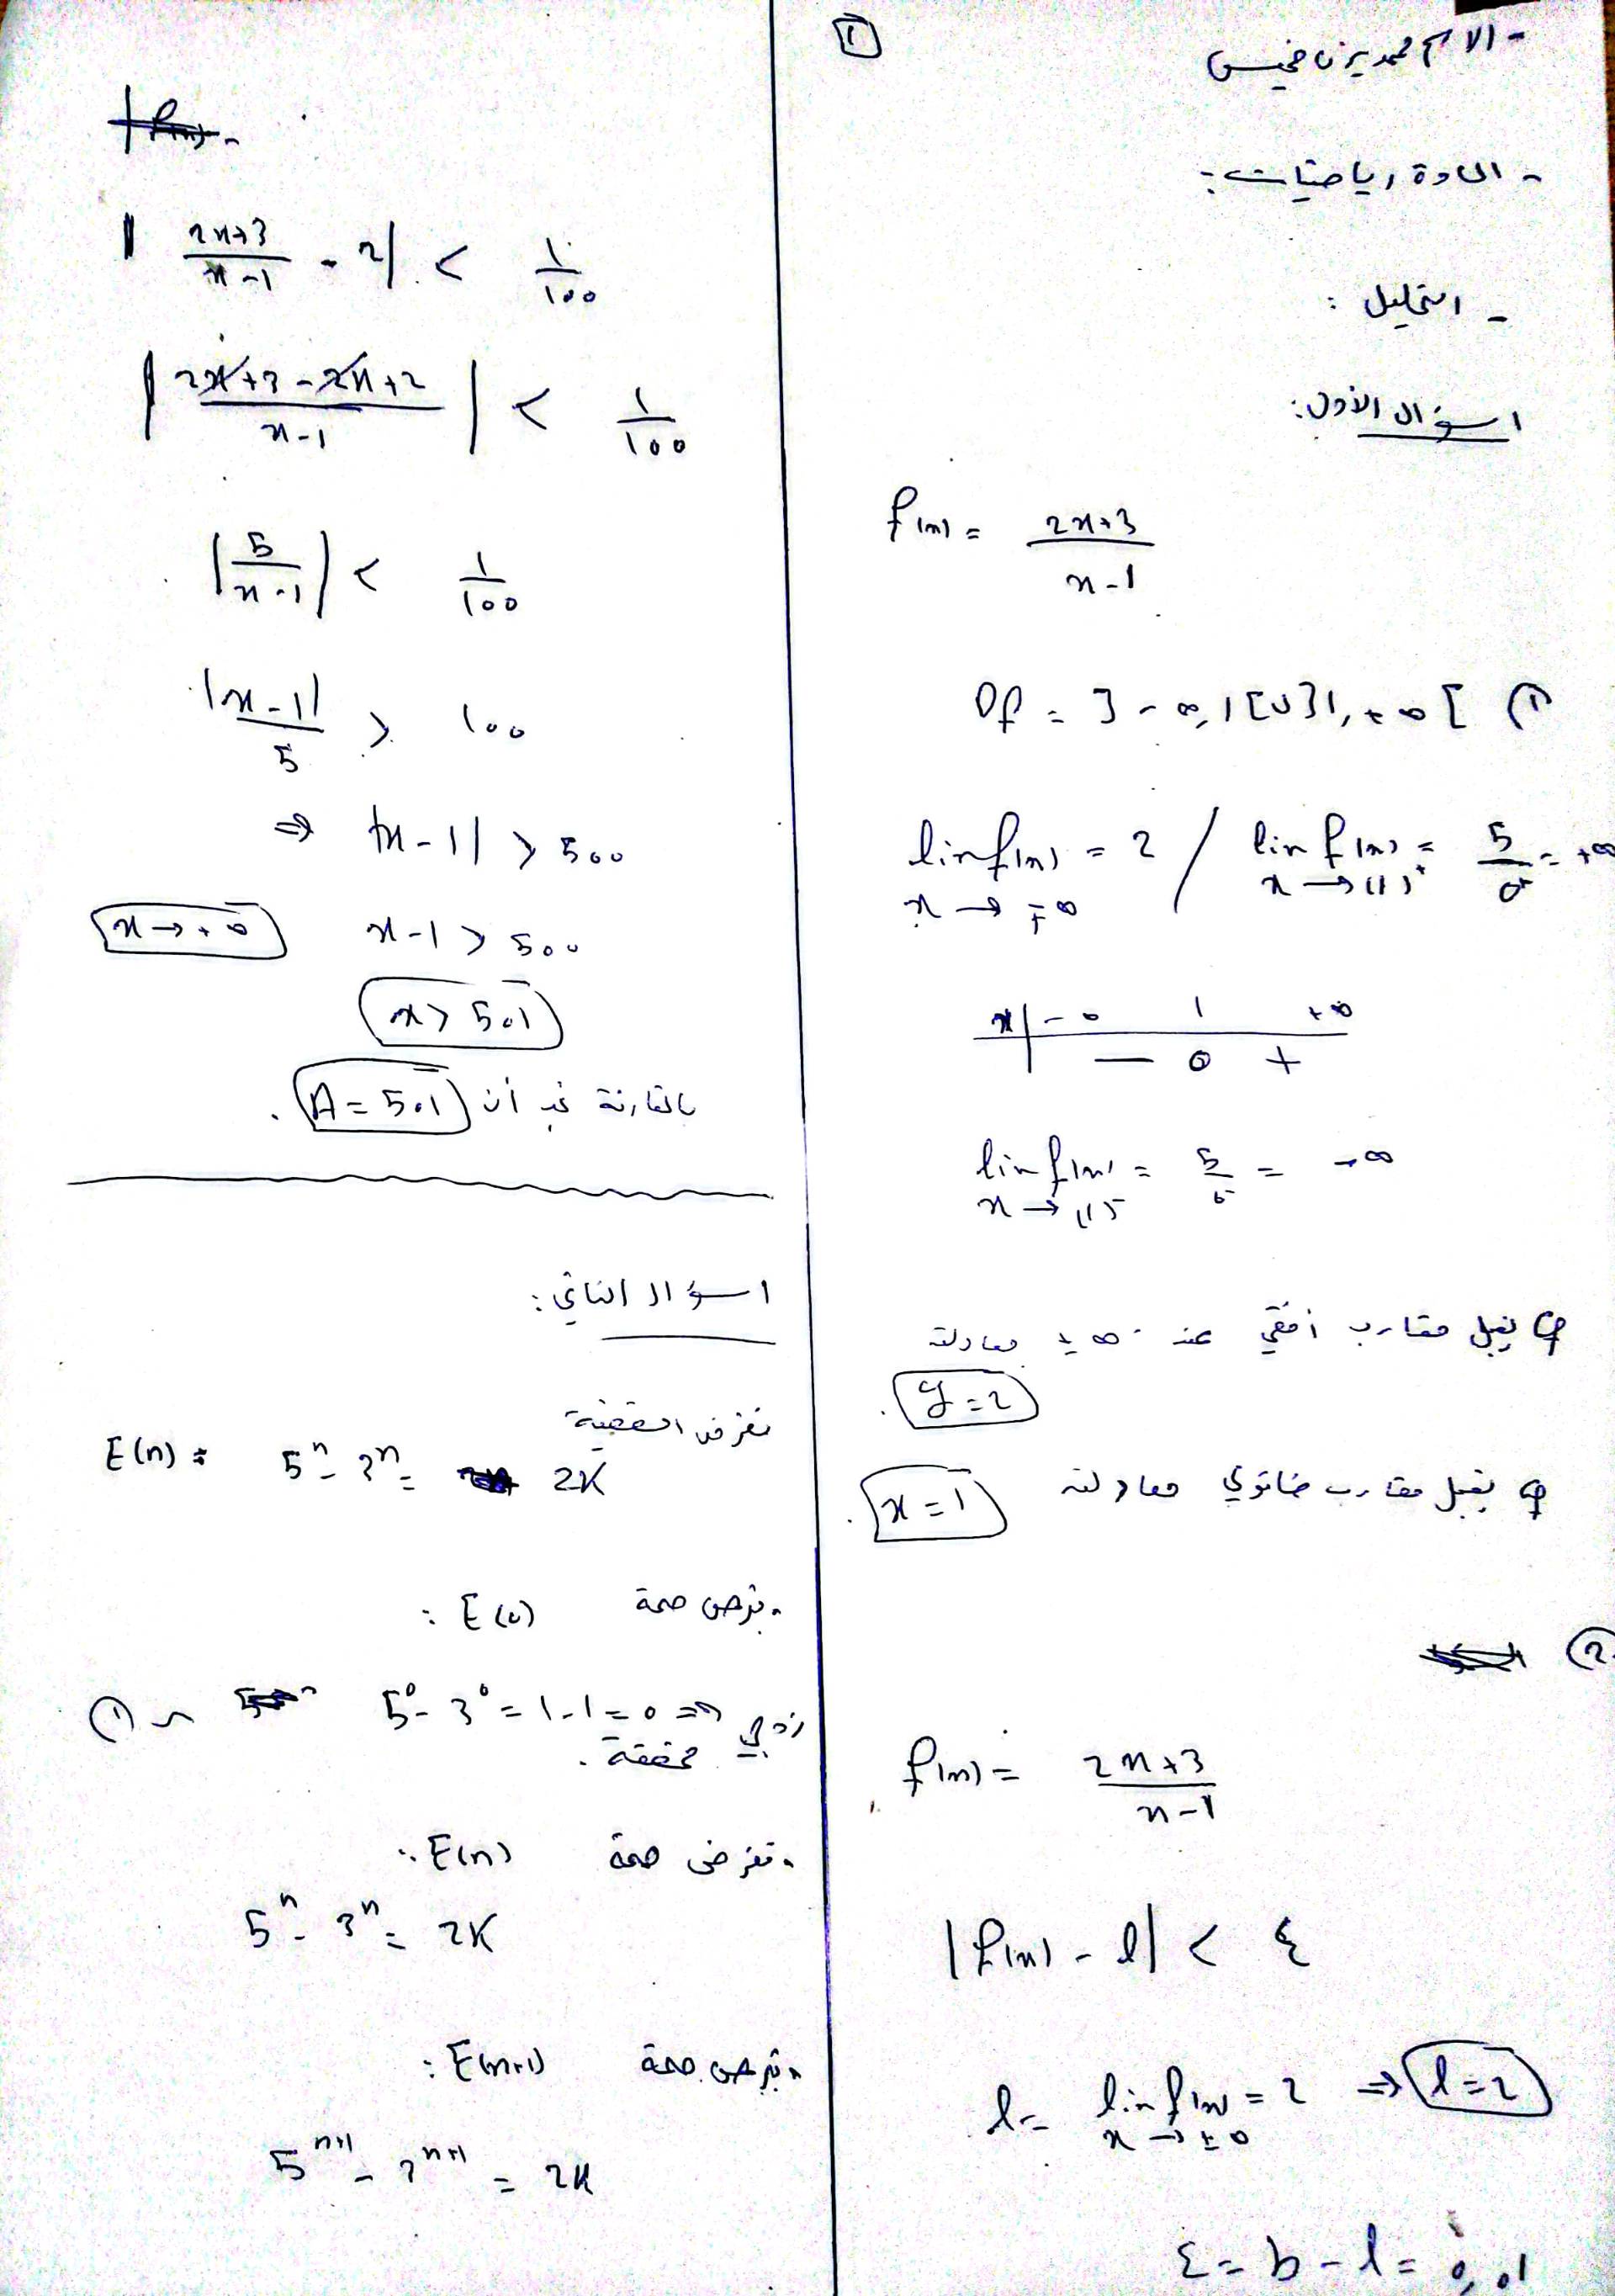 ①
- الاسم محمد يزن خميس
- المادة رياضيات :-
- التحليل :
السؤال الأول:
f(x) = \frac{2x+3}{x-1}
① Df = ]-∞, 1[ ∪ ]1, +∞[
lim f(x) = 2 / lim f(x) = \frac{5}{0^+} = +∞
x → ∓∞ x → (1)^+
x | -∞ 1 +∞
— 0 +
lim f(x) = \frac{5}{0^-} = -∞
x → (1)^-
C يقبل مقارب أفقي عند ±∞ معادلته
y = 2
C يقبل مقارب شاقولي معادلته x = 1 .
②
f(x) = \frac{2x+3}{x-1}
|f(x) - l| < ε
l = lim f(x) = 2 ⇒ l = 2
x → ±∞
ε = b - l = 0,01
|\frac{2x+3}{x-1} - 2| < \frac{1}{100}
|\frac{2x+3-2x+2}{x-1}| < \frac{1}{100}
|\frac{5}{x-1}| < \frac{1}{100}
\frac{|x-1|}{5} > 100
⇒ |x-1| > 500
x → +∞ x-1 > 500
x > 501
بالمقارنة نجد أن A = 501 .
السؤال الثاني:
نفرض القضية
E(n) : 5^n - 3^n = 2K
نبرهن صحة E(0) :
5^0 - 3^0 = 1-1 = 0 ⇒ زوجي
محققة .
نفرض صحة E(n) :
5^n - 3^n = 2K
نبرهن صحة E(n+1) :
5^{n+1} - 3^{n+1} = 2K